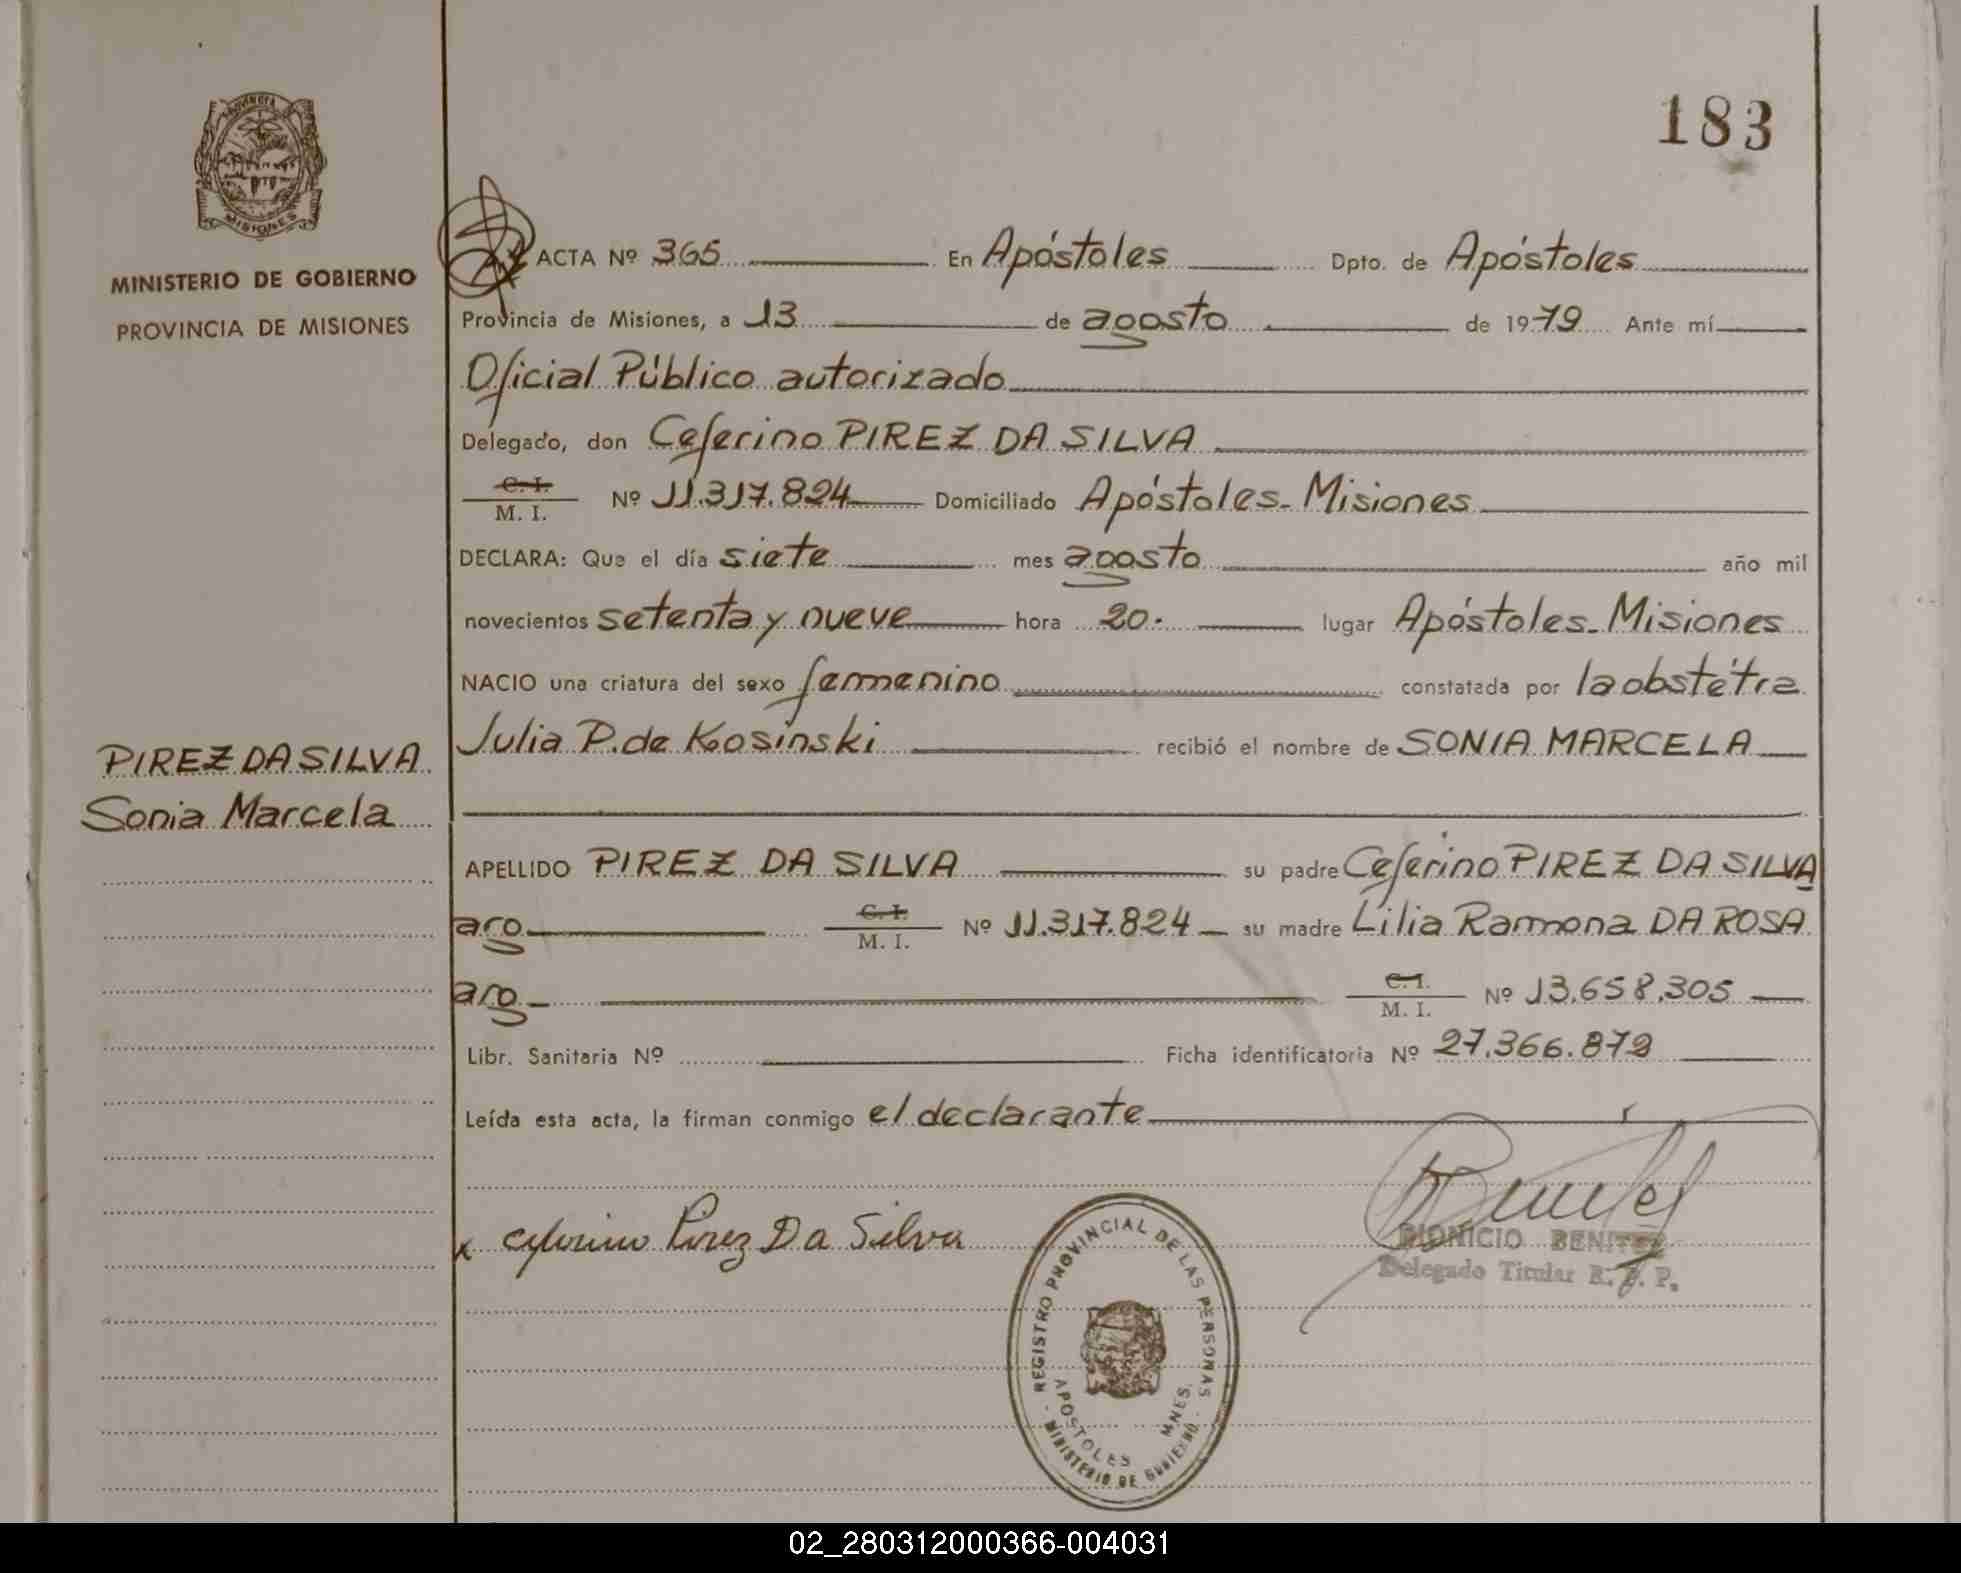 183
PROVINCIA
MISIONES
MINISTERIO DE GOBIERNO
PROVINCIA DE MISIONES
PIREZ DA SILVA
Sonia Marcela
ACTA Nº 365 En Apóstoles Dpto. de Apóstoles
Provincia de Misiones, a 13 de agosto de 1979 Ante mí
Oficial Público autorizado
Delegado, don Ceferino PIREZ DA SILVA
C. I.
M. I. Nº 11.317.824 Domiciliado Apóstoles-Misiones
DECLARA: Que el día siete mes agosto año mil
novecientos setenta y nueve hora 20. lugar Apóstoles-Misiones
NACIO una criatura del sexo femenino constatada por la obstétra
Julia P. de Kosinski recibió el nombre de SONIA MARCELA
APELLIDO PIREZ DA SILVA su padre Ceferino PIREZ DA SILVA
arg C. I.
M. I. Nº 11.317.824 su madre Lilia Ramona DA ROSA
arg C. I.
M. I. Nº 13.658.305
Libr. Sanitaria Nº Ficha identificatoria Nº 27.366.872
Leída esta acta, la firman conmigo el declarante
x Ceferino Pirez Da Silva
DIONICIO BENITEZ
Delegado Titular R. P. P.
REGISTRO PROVINCIAL DE LAS PERSONAS
APOSTOLES MNES.
MINISTERIO DE GOBIERNO
02_280312000366-004031